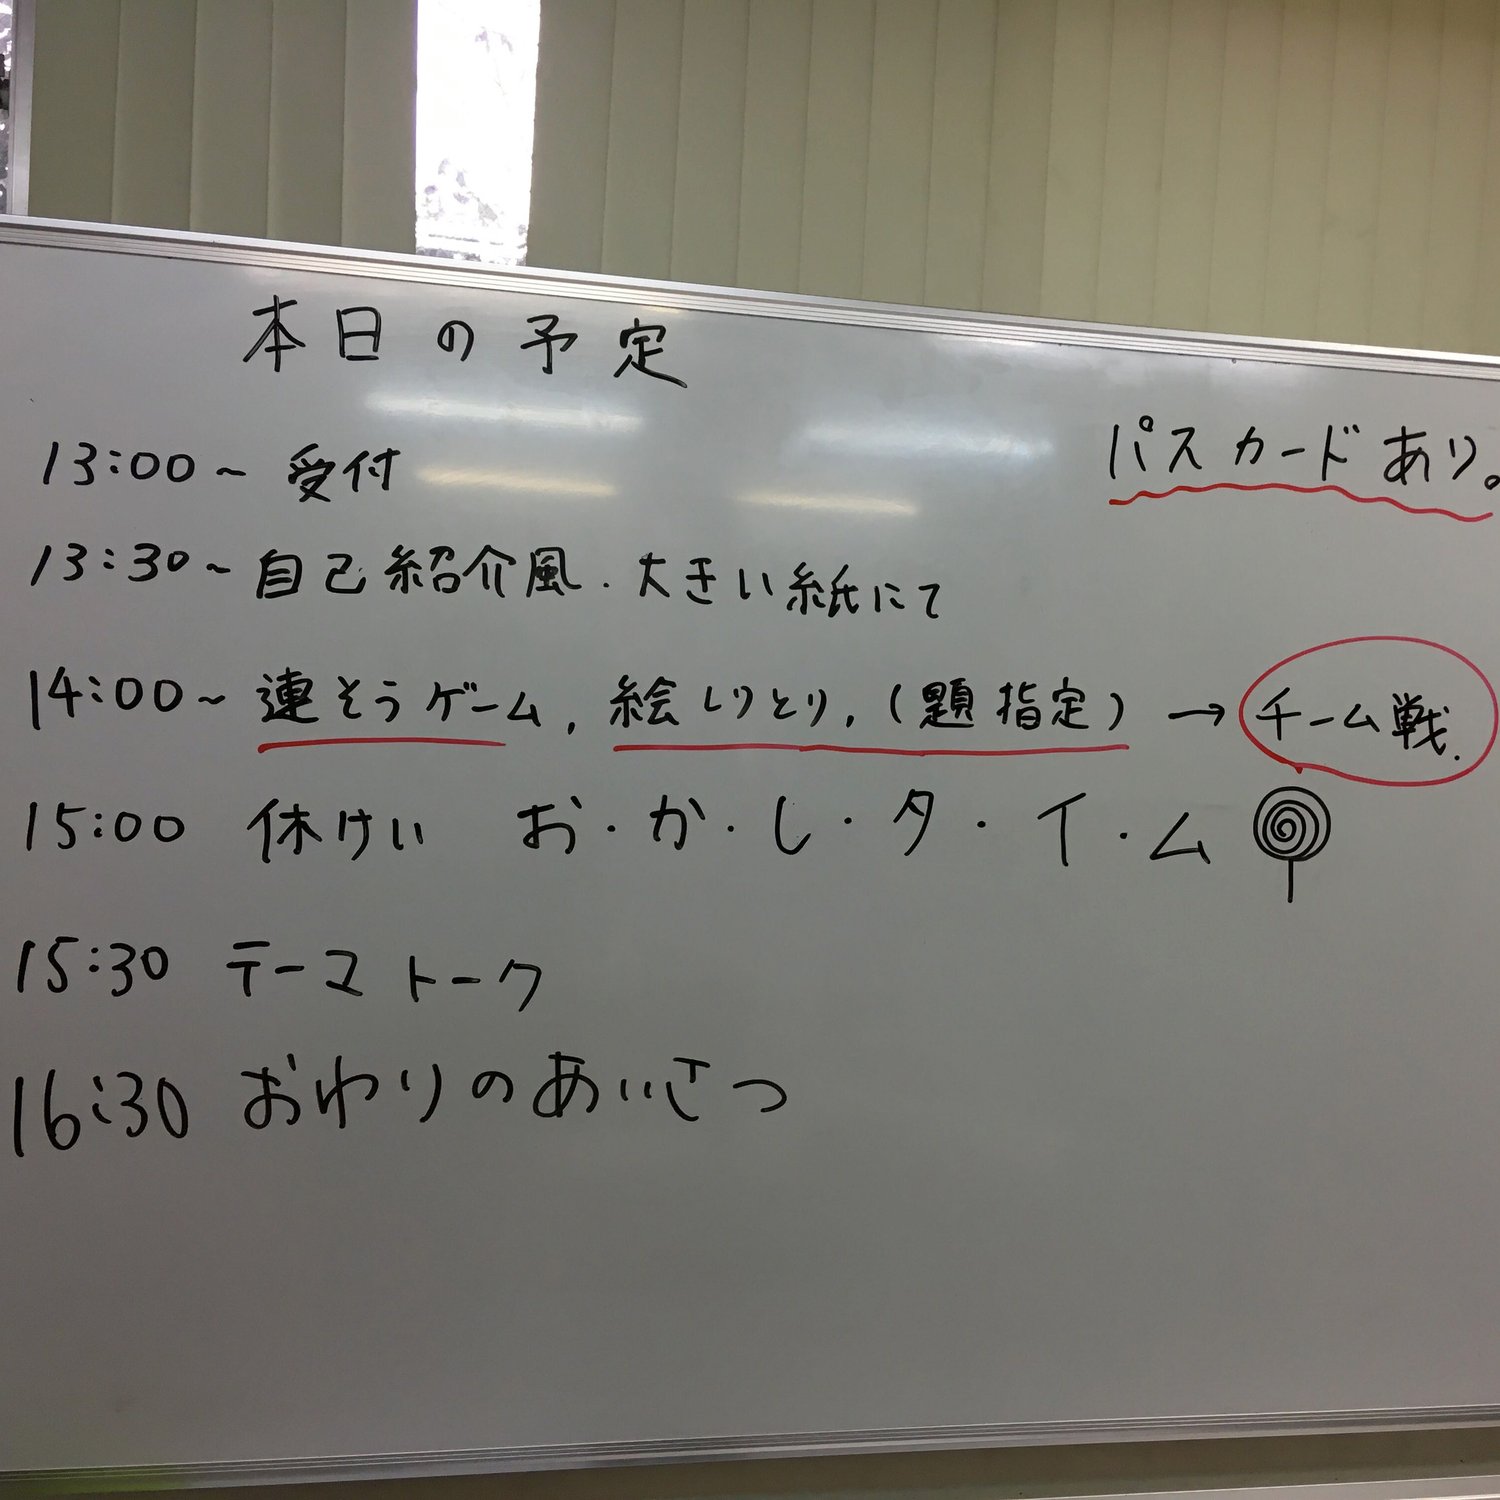 本日の予定
パスカードあり。
13:00～ 受付
13:30～ 自己紹介風・大きい紙にて
14:00～ 連そうゲーム, 絵しりとり, (題指定) → チーム戦.
15:00 休けい お・か・し・タ・イ・ム
15:30 テーマトーク
16:30 おわりのあいさつ